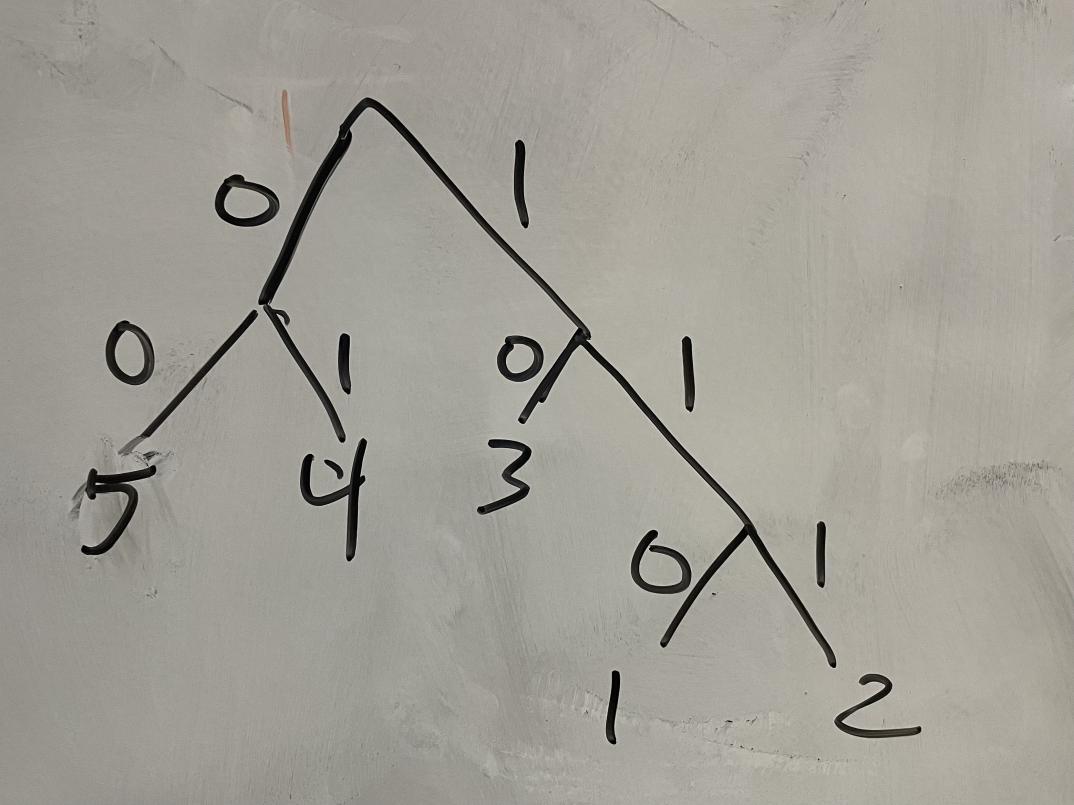 0 1
0 1 0 1
5 4 3
0 1
1 2